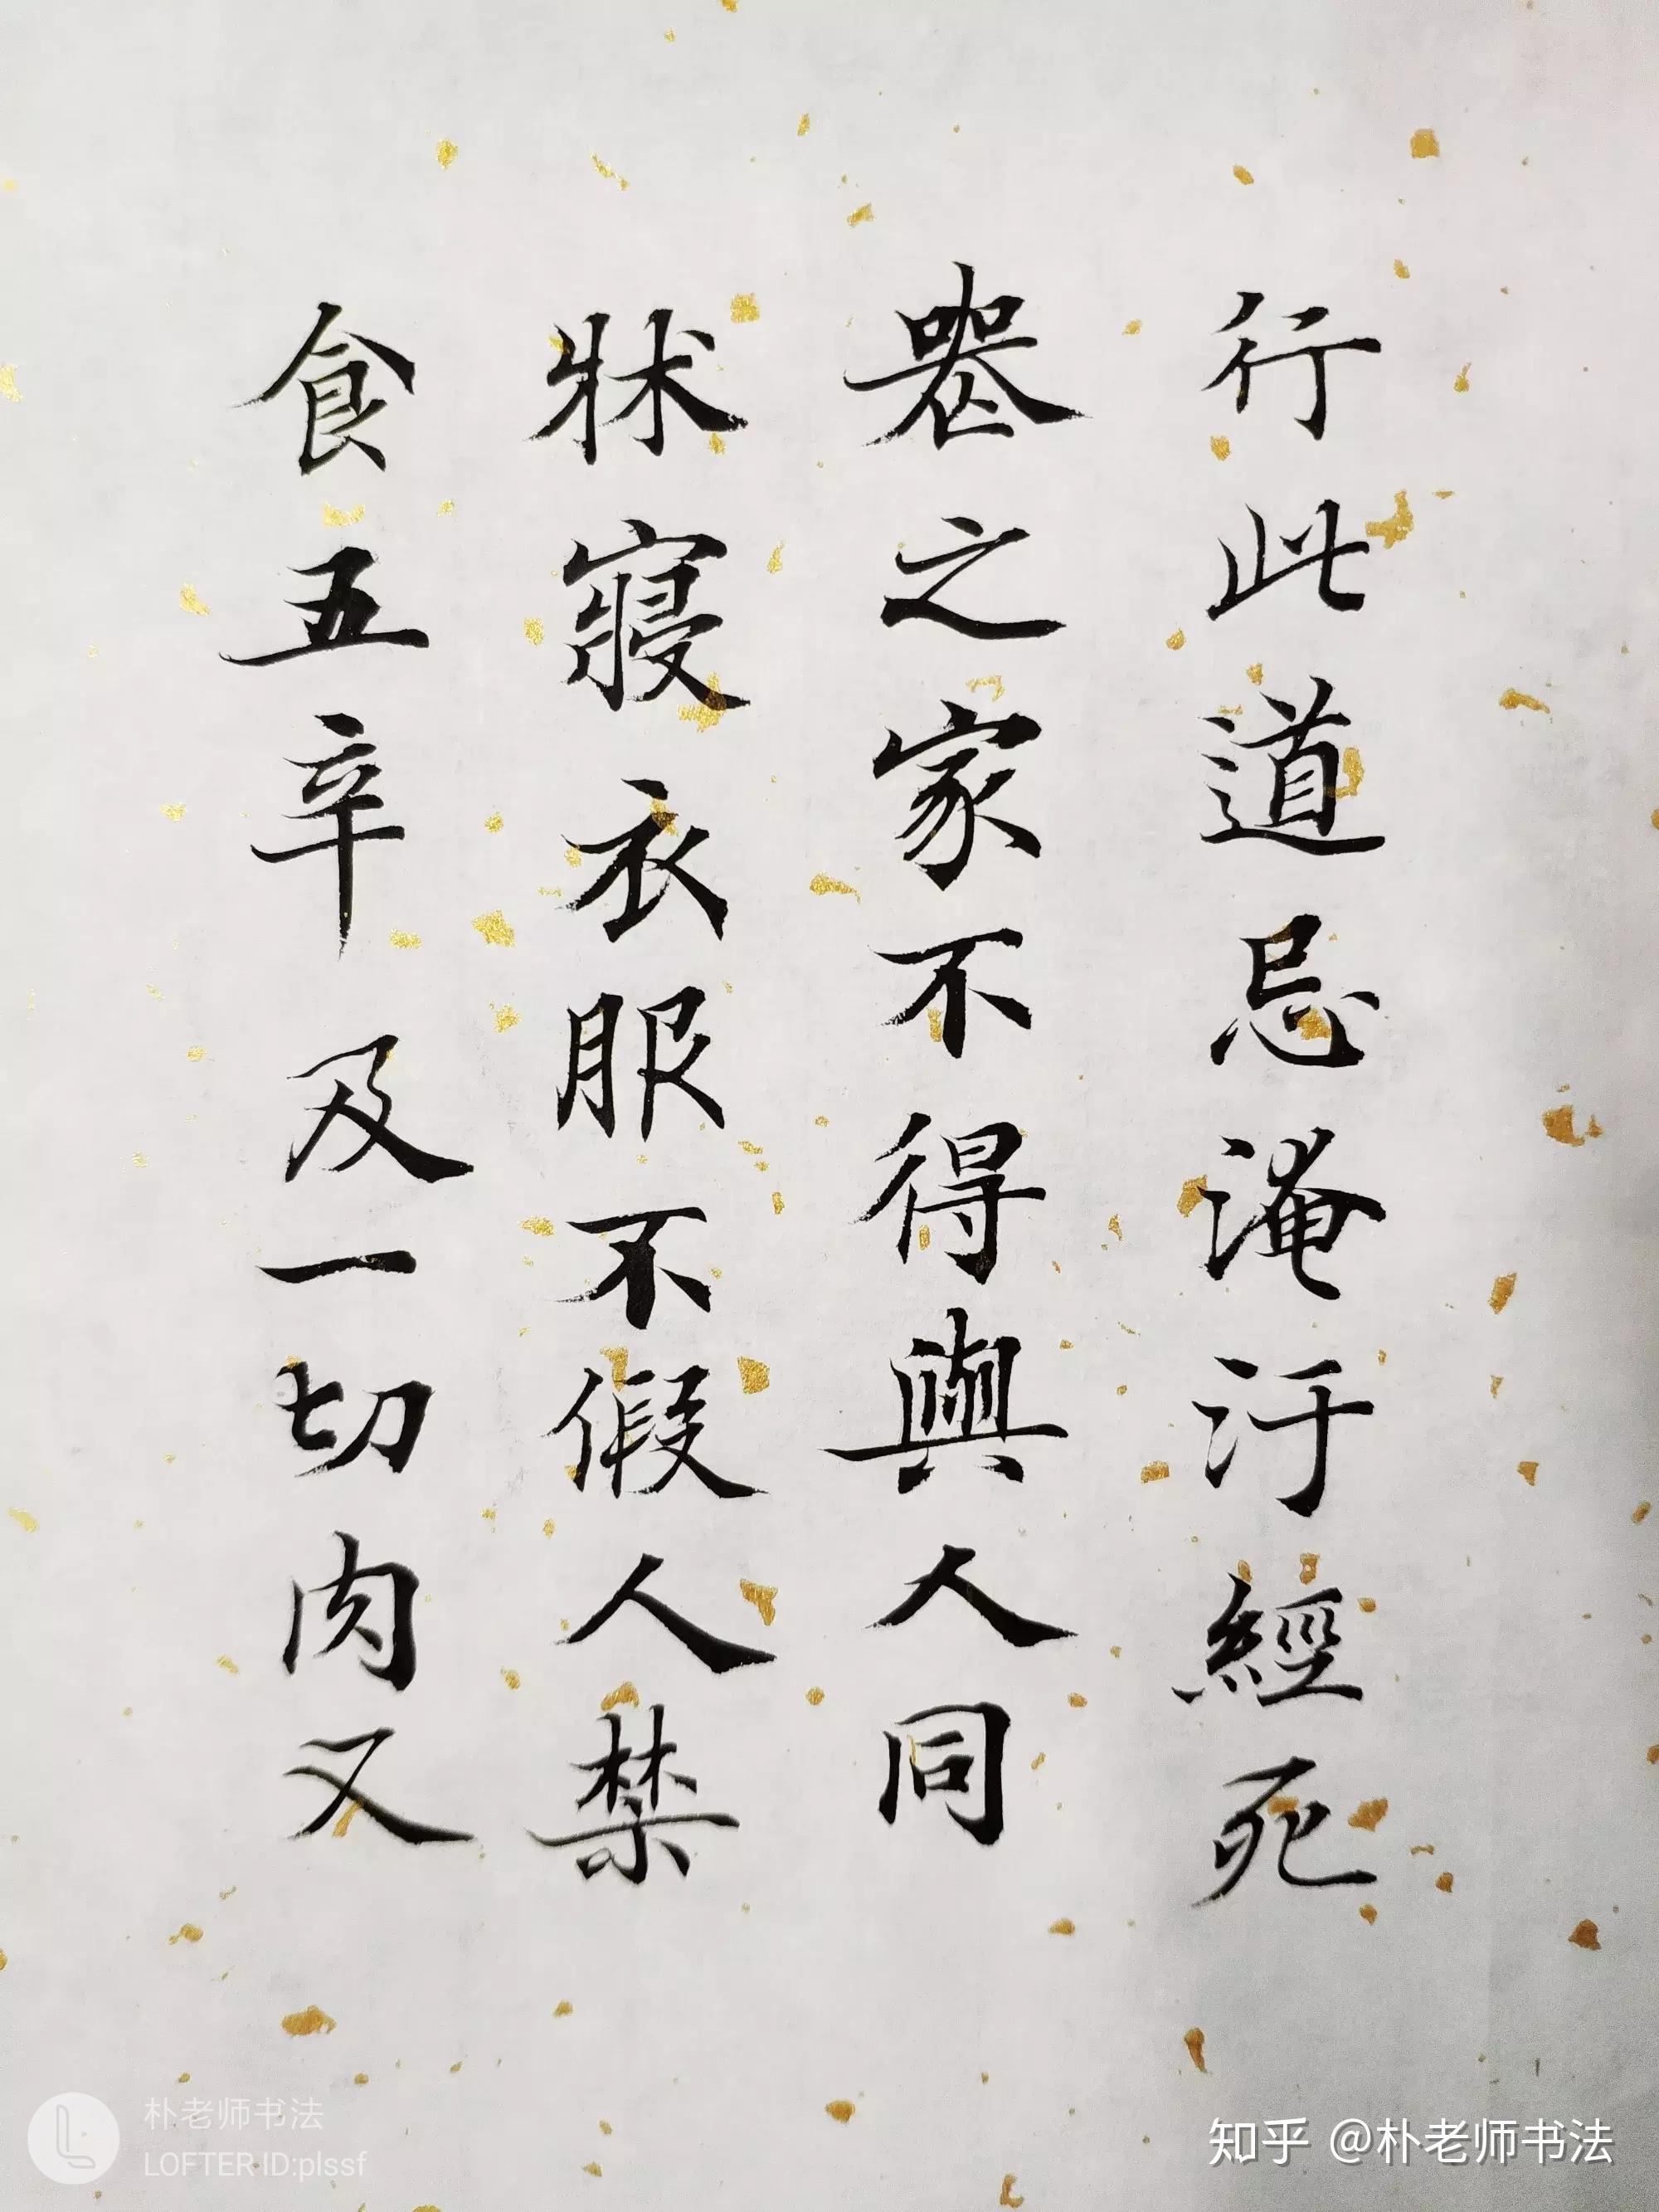 行此道忌淹汙經死
喪之家不得與人同
牀寢衣服不假人禁
食五辛及一切肉又
朴老师书法
LOFTER ID:plssf
知乎 @朴老师书法